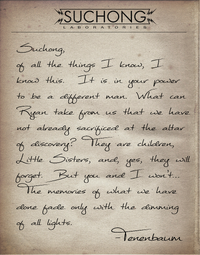 SUCHONG
LABORATORIES
Suchong,
of all the things I know, I
know this. It is in your power
to be a different man. What can
Ryan take from us that we have
not already sacrificed at the altar
of discovery? They are children,
Little Sisters, and, yes, they will
forget. But you and I won't...
The memories of what we have
done fade only with the dimming
of all lights.
Tenenbaum